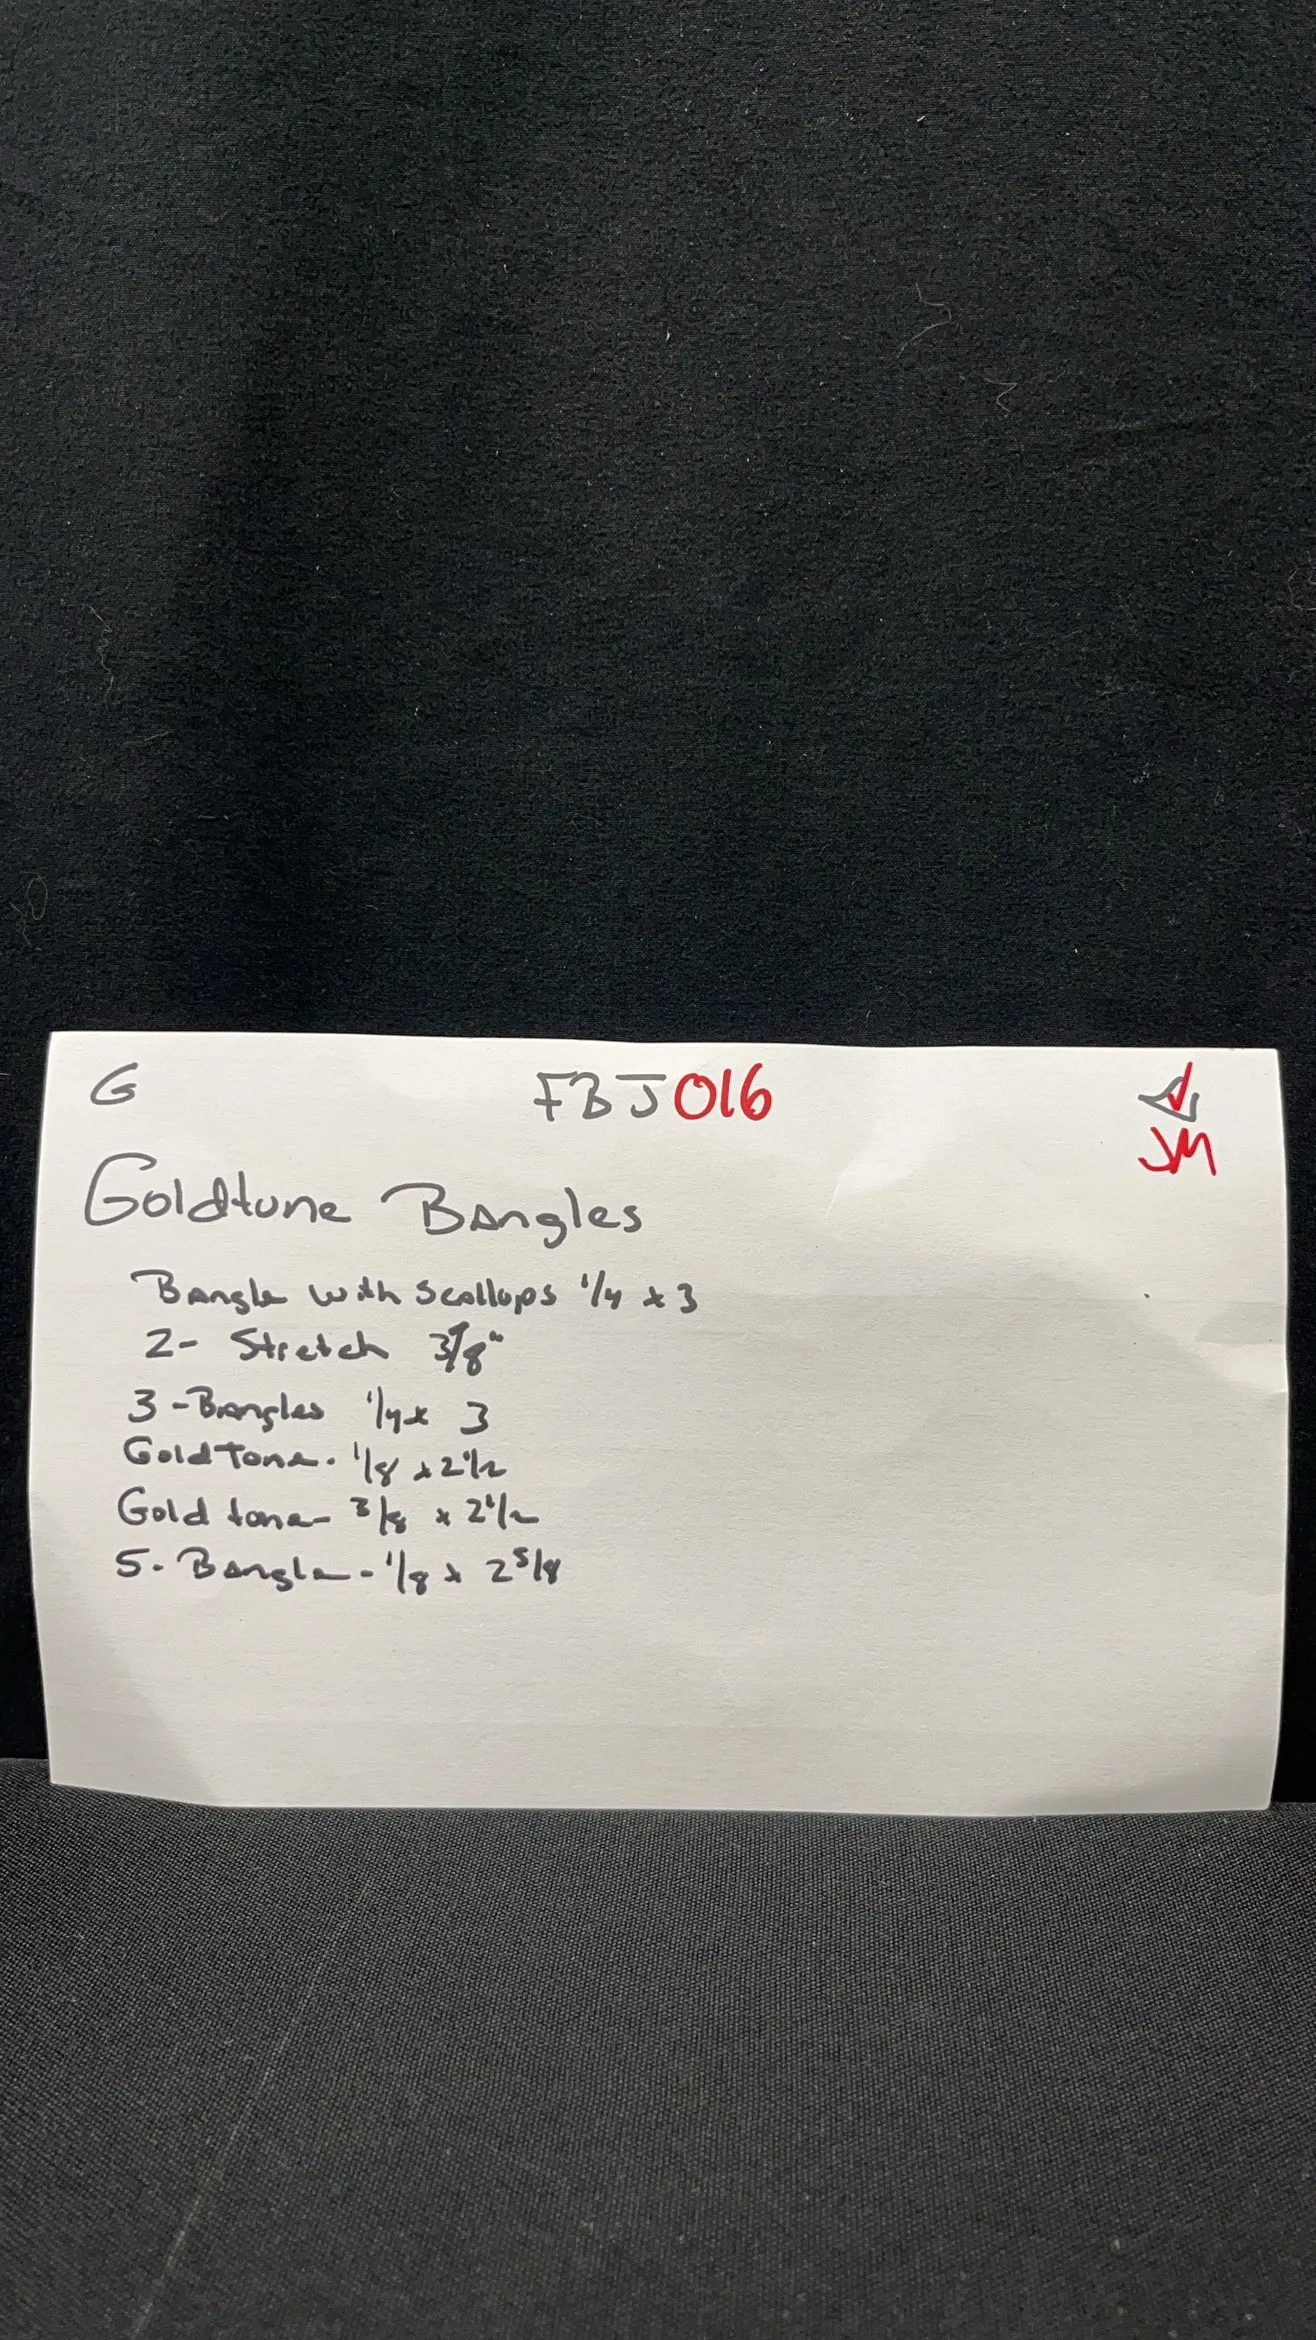 G FBJ016
JM
Goldtone Bangles
Bangle with scallops 1/4 x 3
2- Stretch 3/8"
3-Bangles 1/4 x 3
Goldtone- 1/8 x 2 1/2
Gold tone- 3/8 x 2 1/2
5- Bangle- 1/8 x 2 5/8